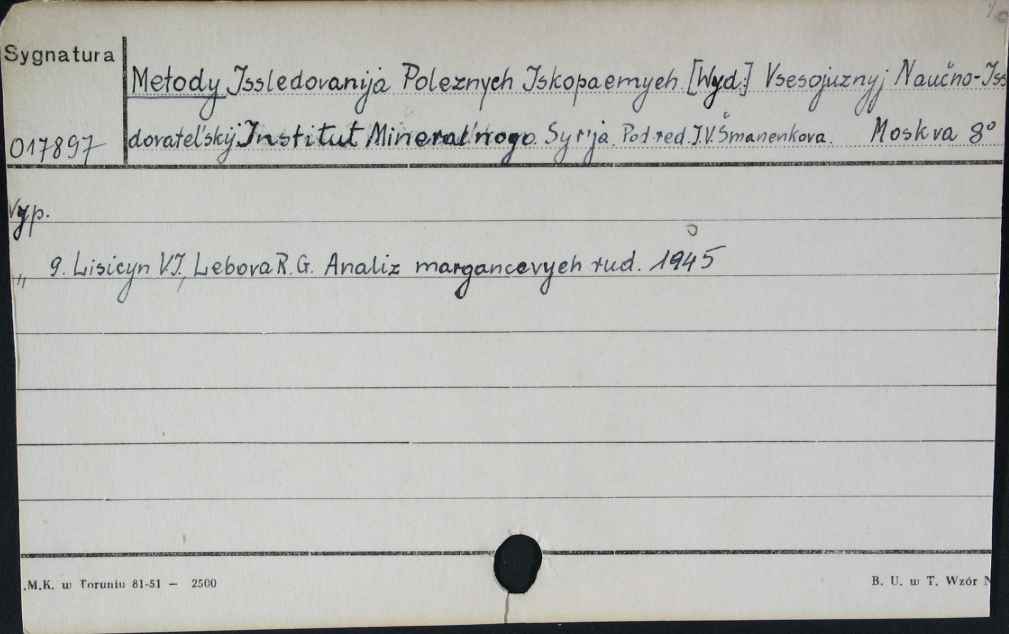 Sygnatura
Metody Issledovanija Poleznych Iskopaemych [Wyd.] Vsesojuznyj Naučno-Iss
017897 dovatel'skij Institut Mineral'nogo Syr'ja. Pod red. I.V. Šmanenkova. Moskva 8°
Vyp.
„ 9. Lisicyn V.I., Lebova R.G. Analiz margancevych rud. 1945
.M.K. w Toruniu 81-51 — 2500
B. U. w T. Wzór N